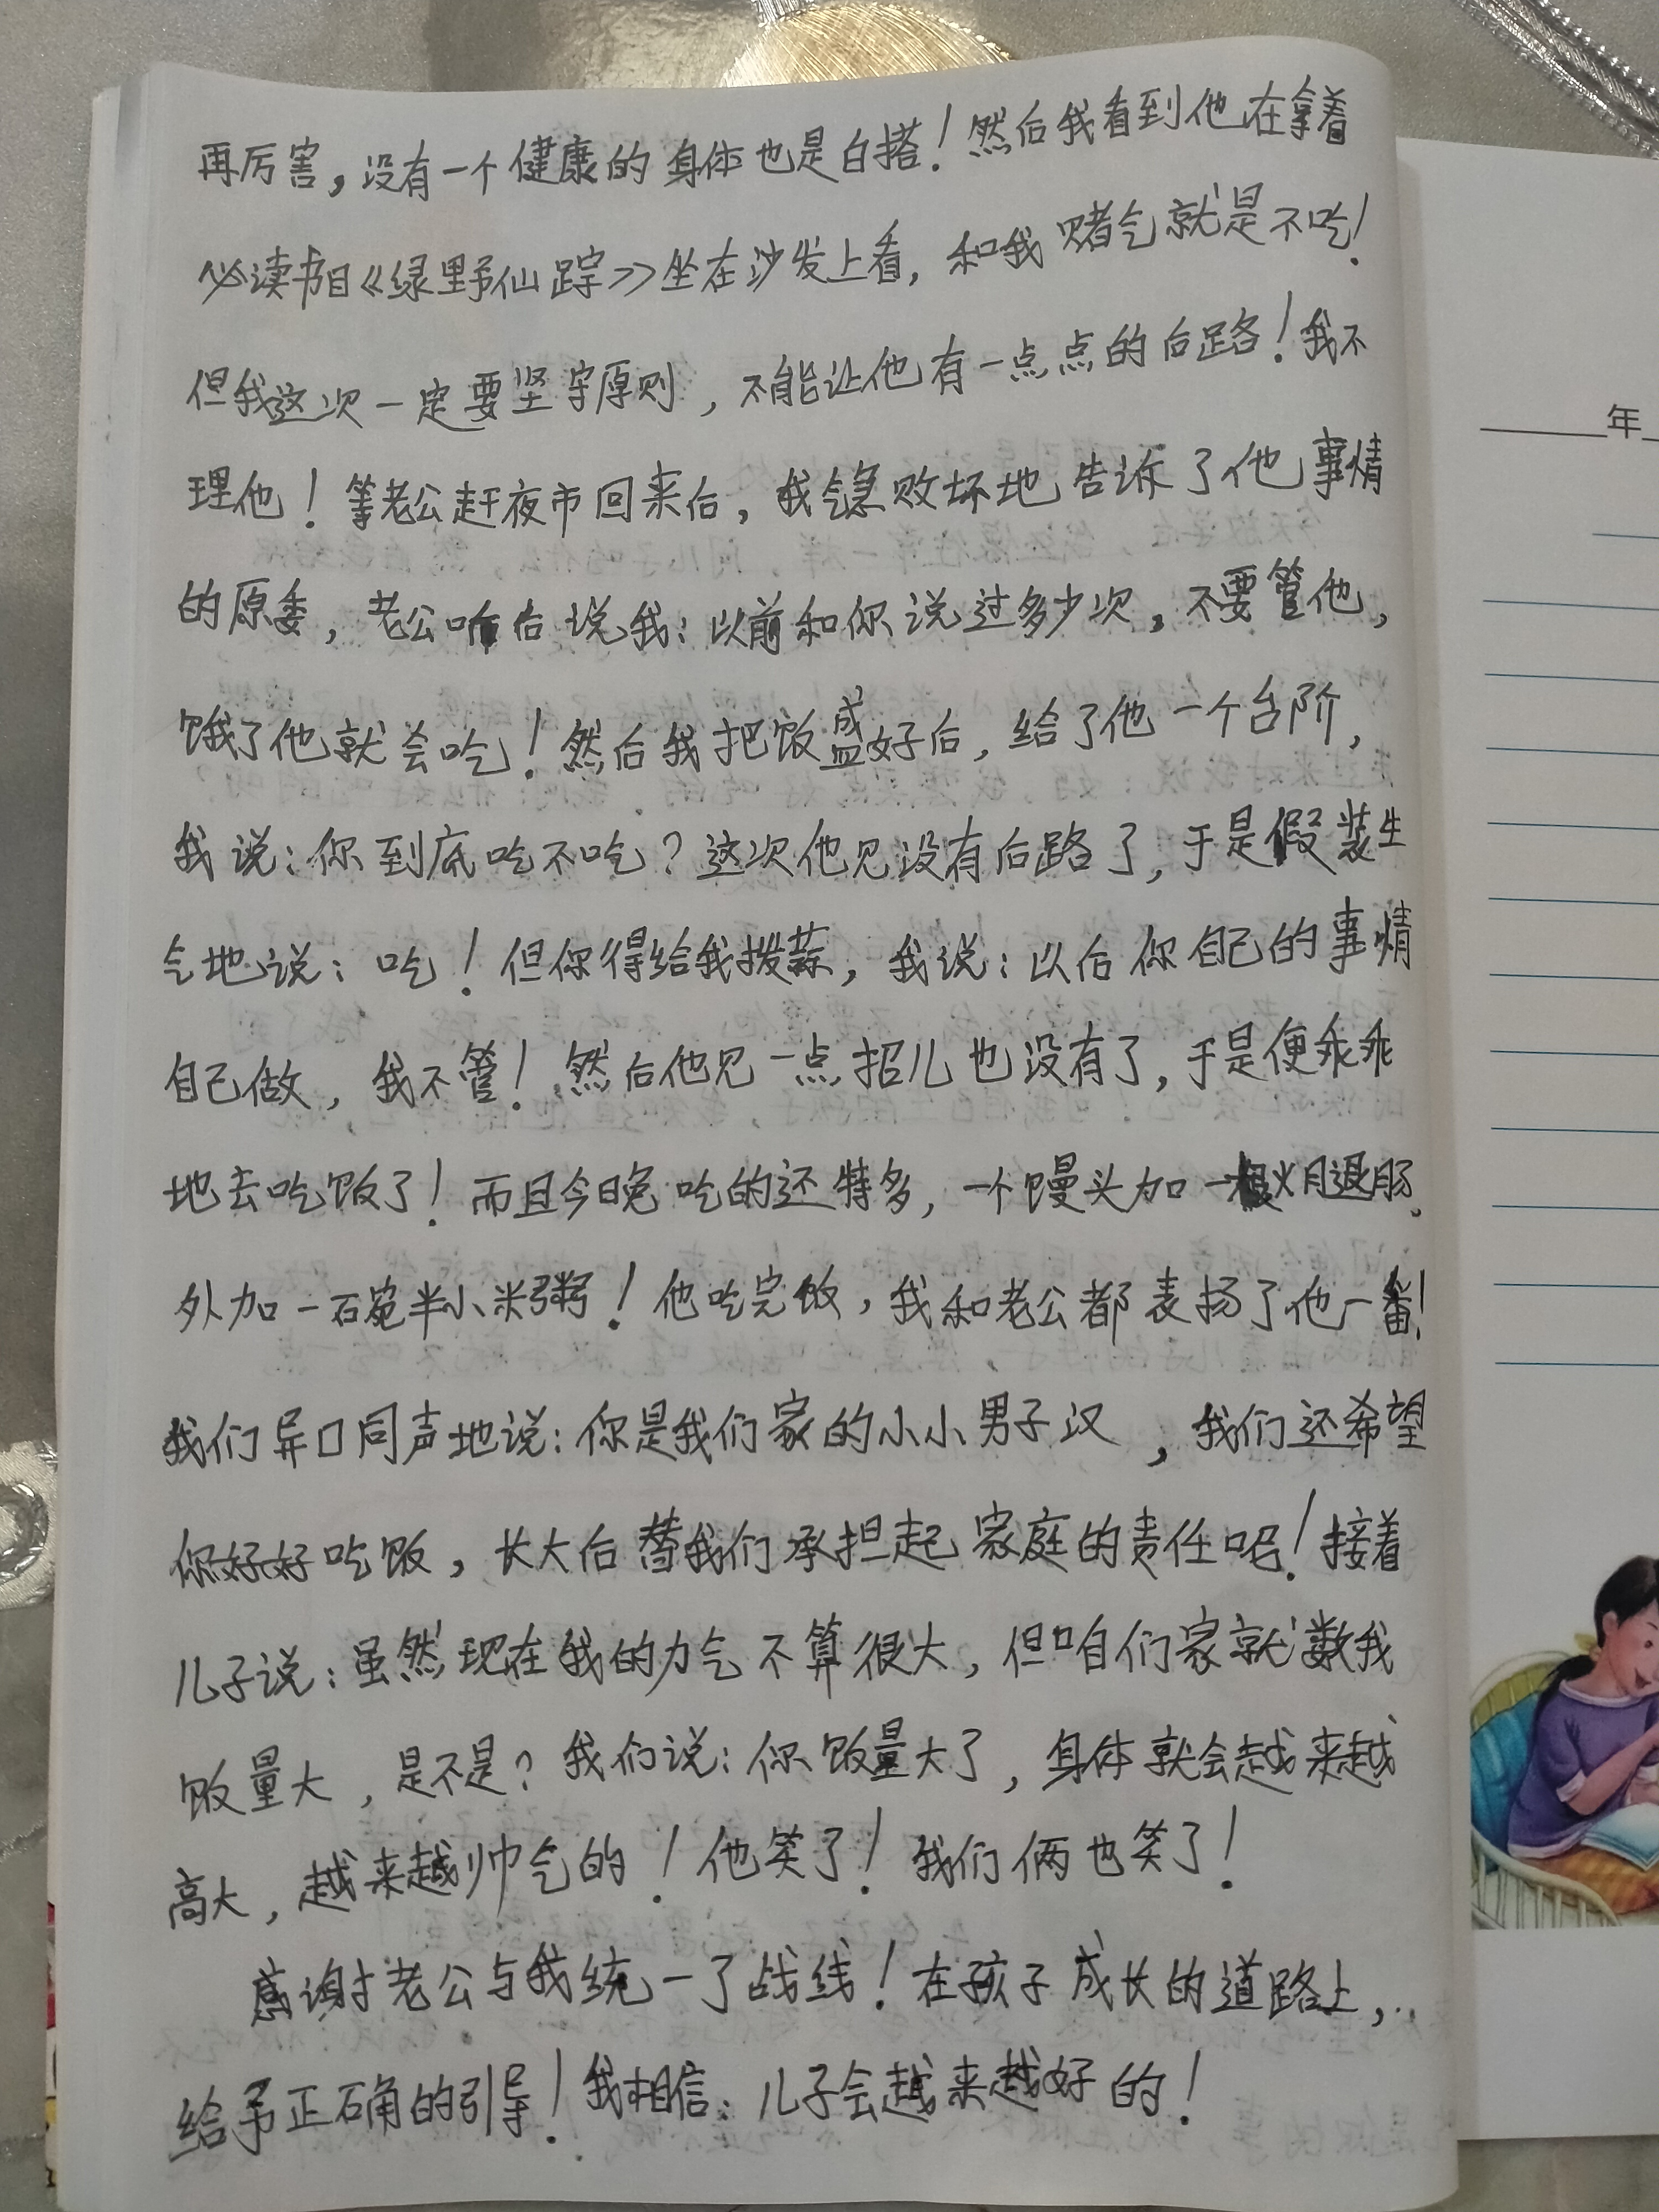 再厉害，没有一个健康的身体也是白搭！然后我看到他在拿着
必读书目《绿野仙踪》坐在沙发上看，和我赌气就是不吃！
但我这次一定要坚守原则，不能让他有一点点的后路！我不
理他！等老公赶夜市回来后，我气急败坏地告诉了他事情
的原委，老公听后说我：以前和你说过多少次，不要管他，
饿了他就会吃！然后我把饭盛好后，给了他一个台阶，
我说：你到底吃不吃？这次他见没有后路了，于是假装生
气地说：吃！但你得给我拨蒜，我说：以后你自己的事情
自己做，我不管！然后他见一点招儿也没有了，于是便乖乖
地去吃饭了！而且今晚吃的还特多，一个馒头加一根火腿肠、
外加一碗半小米粥！他吃完饭，我和老公都表扬了他一番！
我们异口同声地说：你是我们家的小小男子汉，我们还希望
你好好吃饭，长大后替我们承担起家庭的责任呢！接着
儿子说：虽然现在我的力气不算很大，但咱们家就数我
饭量大，是不是？我们说：你饭量大了，身体就会越来越
高大，越来越帅气的！他笑了！我们俩也笑了！
感谢老公与我统一了战线！在孩子成长的道路上，
给予正确的引导！我相信：儿子会越来越好的！
年